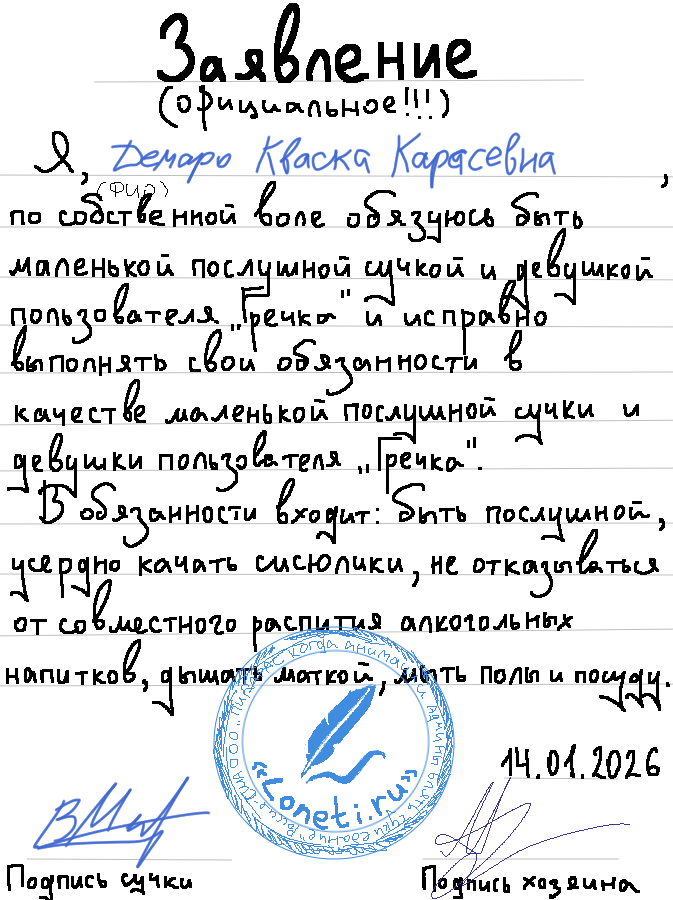 Заявление
(официальное!!!)
Я, Демаро Кваска Карасевна,
(ФИО)
по собственной воле обязуюсь быть
маленькой послушной сучкой и девушкой
пользователя „Гречка" и исправно
выполнять свои обязанности в
качестве маленькой послушной сучки и
девушки пользователя „Гречка".
В обязанности входит: быть послушной,
усердно качать сисюлики, не отказываться
от совместного распития алкогольных
напитков, дышать маткой, мыть полы и посуду.
«Loneti.ru»
14.01.2026
Подпись сучки
Подпись хозяина